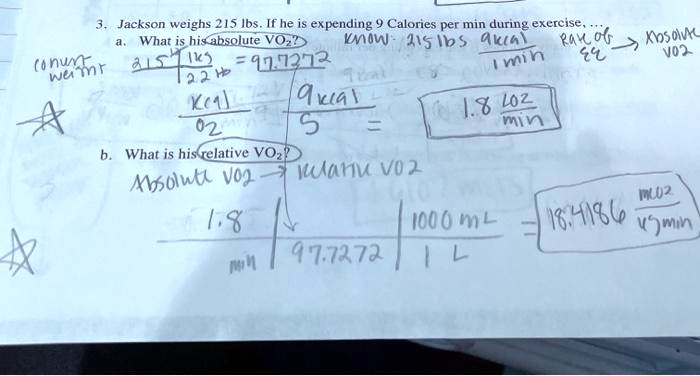 3. Jackson weighs 215 lbs. If he is expending 9 Calories per min during exercise, ...
a. What is his absolute VO₂?
know: 215 lbs 9kcal / 1 min Rate of EE → Absolute VO2
convert weight 215 lb 1kg / 2.2 lb = 97.7272
kcal / O2 9kcal / 5 = 1.8 LO2 / min
b. What is his relative VO₂?
Absolute VO2 → relative VO2
1.8 1000 mL = 18.4186 mLO2 / kgmin
min 97.7272 1 L